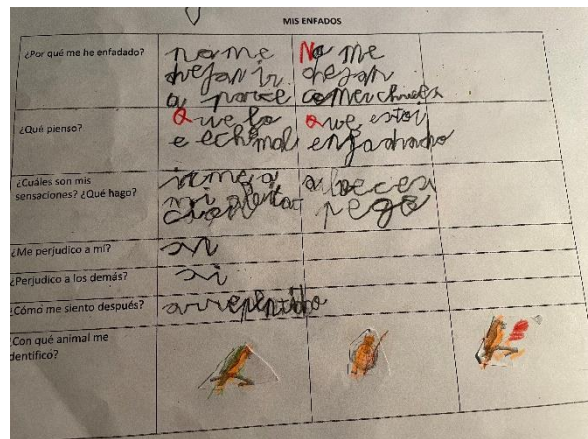 MIS ENFADOS
¿Por qué me he enfadado?
no me
dejan ir
a
No me
dejan
comer chuches
¿Qué pienso?
Que lo
e echo mal
Que estoi
enfadado
¿Cuáles son mis
sensaciones? ¿Qué hago?
irme a
mi
a beces
pego
¿Me perjudico a mí?
¿Perjudico a los demás?
si
¿Cómo me siento después?
arrepentido
¿Con qué animal me
identifico?